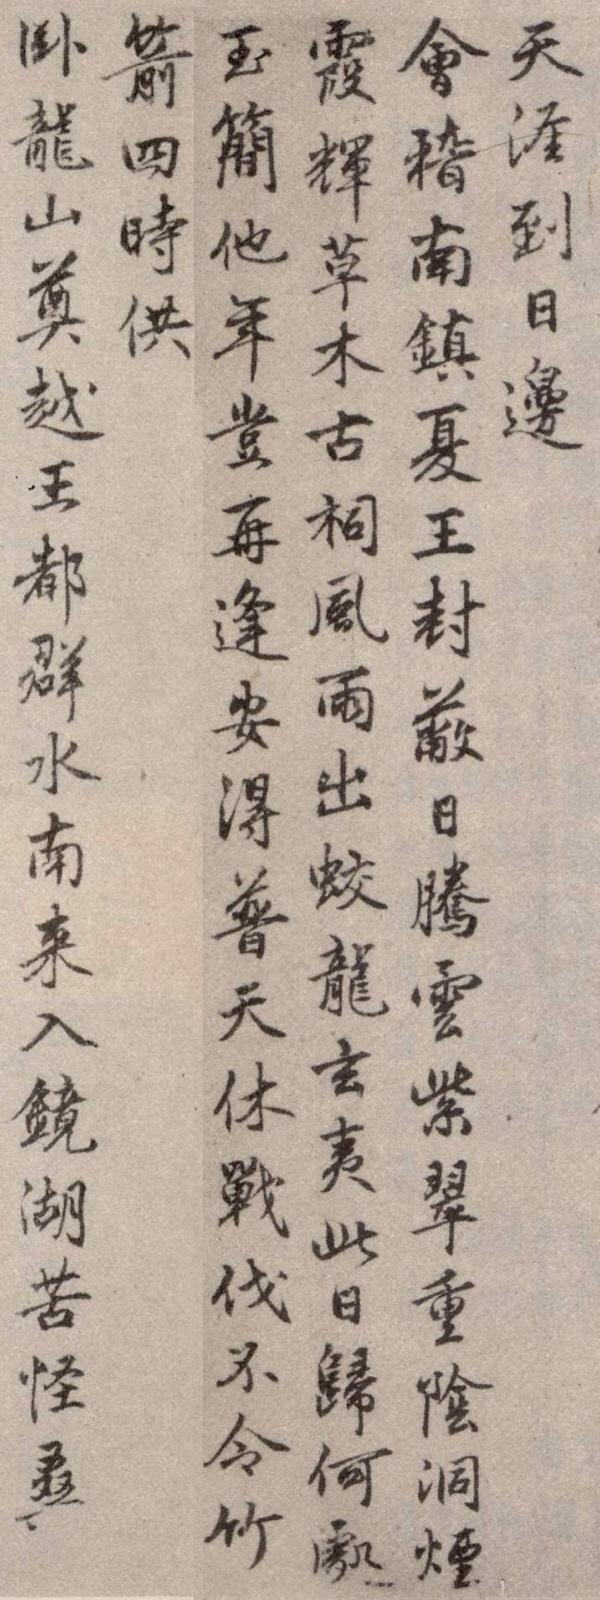 天涯到日邊
會稽南鎮夏王封蔽日騰雲紫翠重陰洞煙
霞輝草木古祠風雨出蛟龍玄夷此日歸何處
玉簡他年豈再逢安得普天休戰伐不令竹
箭四時供
臥龍山奠越王都群水南来入鏡湖苦怪